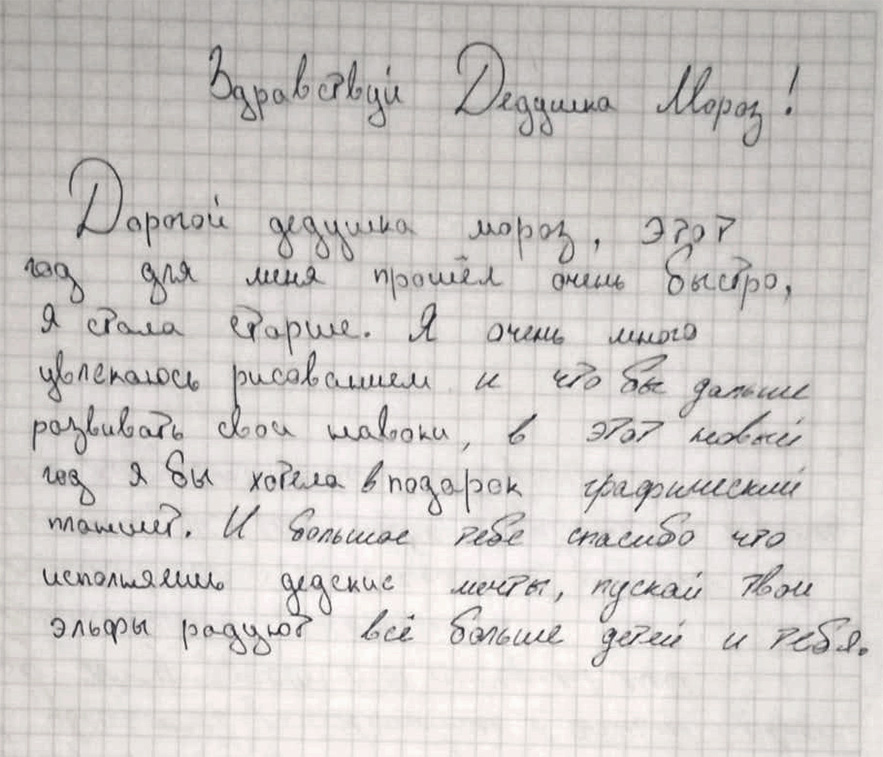 Здравствуй Дедушка Мороз!
Дорогой дедушка мороз, этот
год для меня прошёл очень быстро,
я стала старше. Я очень много
увлекаюсь рисованием и что бы дальше
развивать свои навоки, в этот новый
год я бы хотела в подарок графический
планшет. И большое тебе спасибо что
исполняешь дедские мечты, пускай твои
эльфы радуют всё больше детей и тебя.